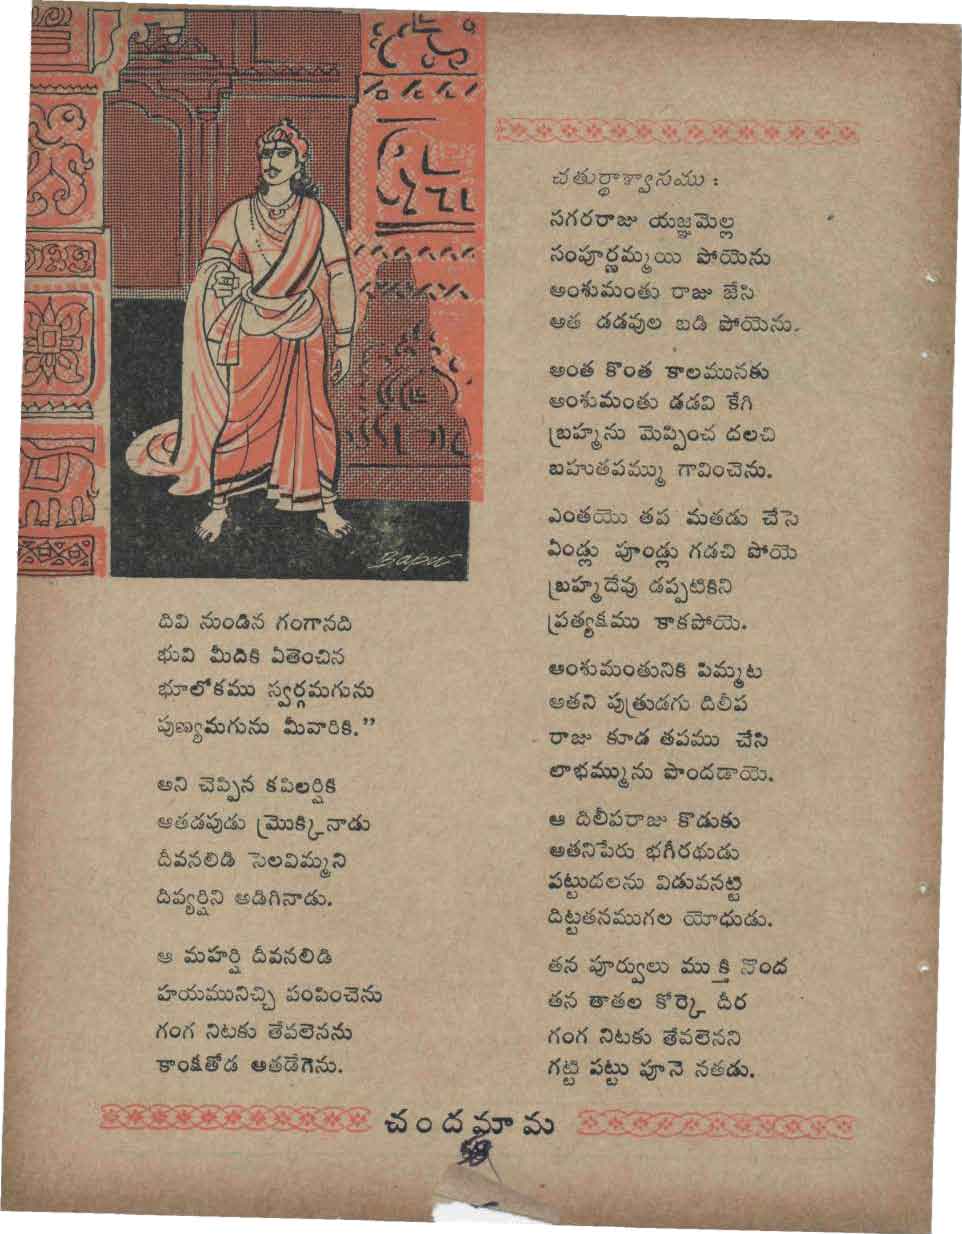 Bapu
దివి నుండిన గంగానది
భువి మీదికి ఏతెంచిన
భూలోకము స్వర్గమగును
పుణ్యమగును మీవారికి."
అని చెప్పిన కపిలర్షికి
ఆతడపుడు మ్రొక్కినాడు
దీవనలిడి సెలవిమ్మని
దివ్యర్షిని అడిగినాడు.
ఆ మహర్షి దీవనలిడి
హయమునిచ్చి పంపించెను
గంగ నిటకు తేవలెనను
కాంక్షతోడ ఆతడేగెను.
చతుర్థాశ్వాసము :
సగరరాజు యజ్ఞమెల్ల
సంపూర్ణమ్మయి పోయెను
అంశుమంతు రాజు జేసి
ఆత డడవుల బడి పోయెను.
అంత కొంత కాలమునకు
అంశుమంతు డడవి కేగి
బ్రహ్మను మెప్పించ దలచి
బహుతపమ్ము గావించెను.
ఎంతయొ తప మతడు చేసె
ఏండ్లు పూండ్లు గడచి పోయె
బ్రహ్మదేవు డప్పటికిని
ప్రత్యక్షము కాకపోయె.
అంశుమంతునికి పిమ్మట
అతని పుత్రుడగు దిలీప
రాజు కూడ తపము చేసి
లాభమ్మును పొందడాయె.
ఆ దిలీపరాజు కొడుకు
అతనిపేరు భగీరథుడు
పట్టుదలను విడువనట్టి
దిట్టతనముగల యోధుడు.
తన పూర్వులు ముక్తి నొంద
తన తాతల కోర్కె దీర
గంగ నిటకు తేవలెనని
గట్టి పట్టు పూనె నతడు.
చందమామ